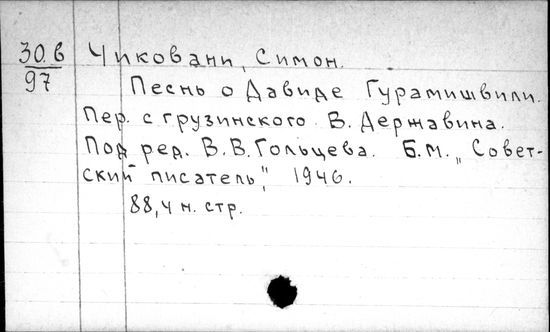 30.в Чиковани, Симон.
97
Песнь о Давиде Гурамишвили.
Пер. с грузинского В. Державина.
Под ред. В.В. Гольцева. Б.М. „Совет-
ский писатель", 1946.
88,4 н. стр.